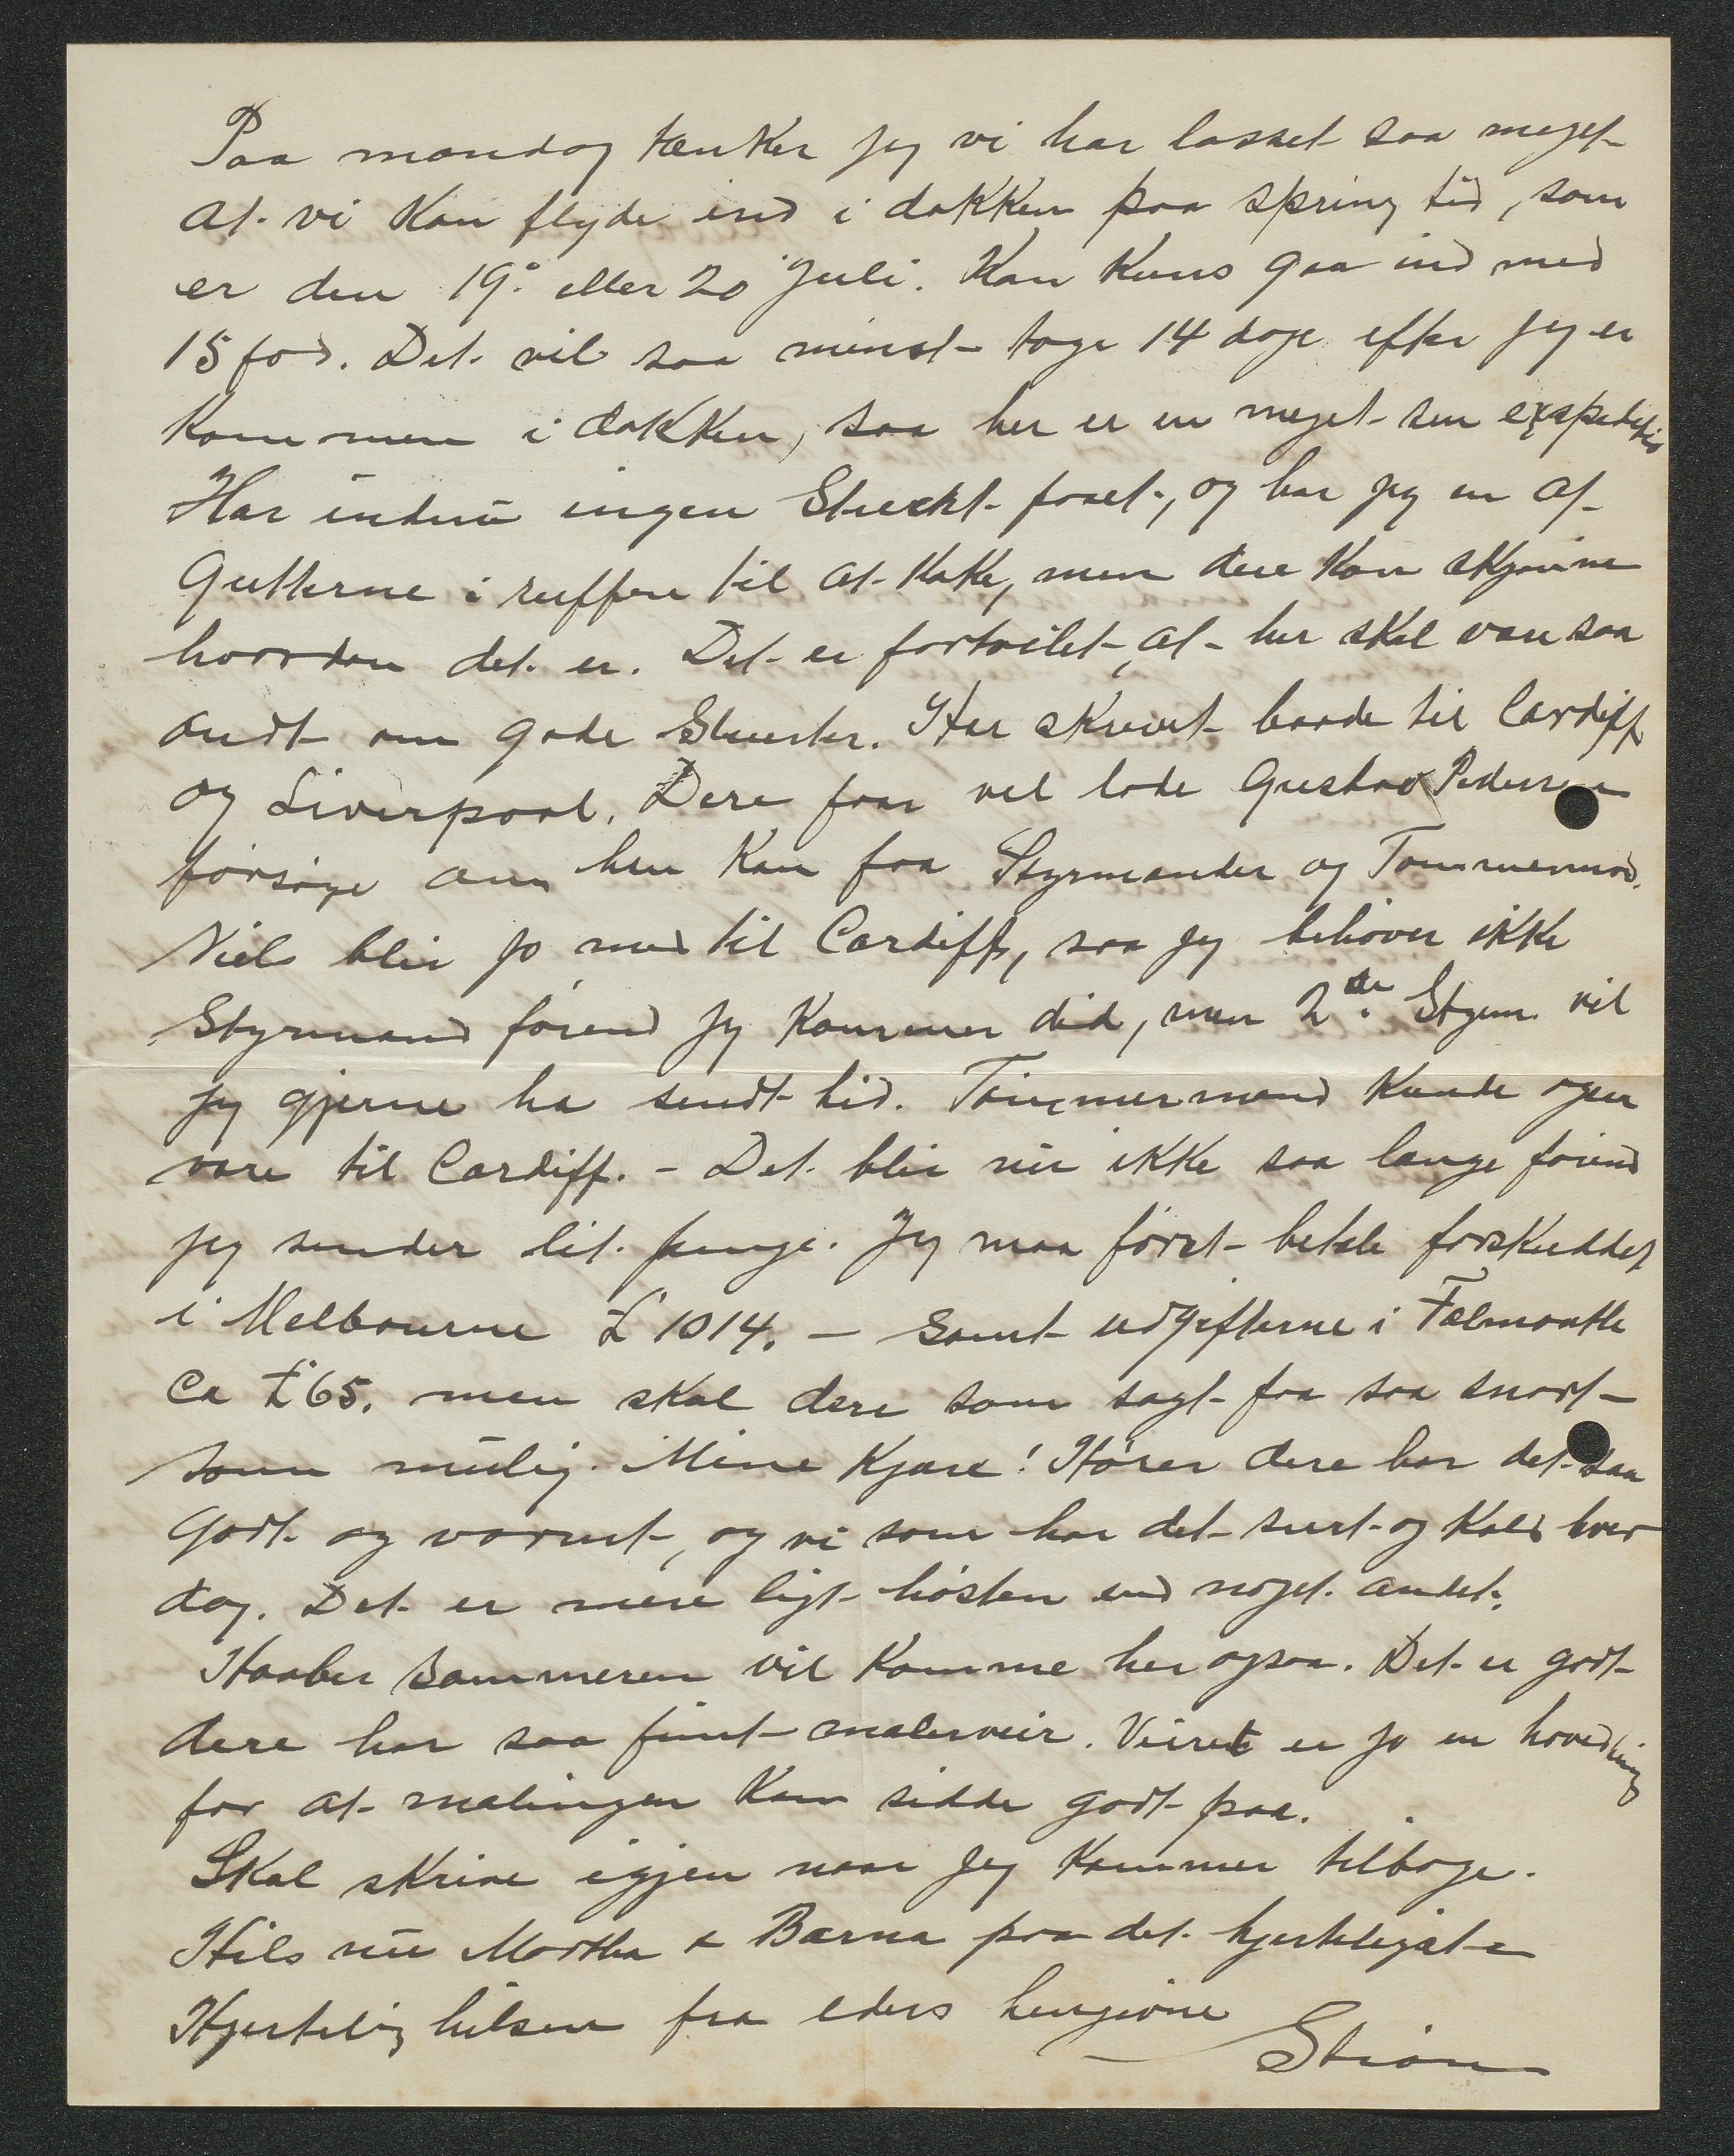 Paa mandag tænker jeg vi har losset saa meget
at vi kan flyde ind i dokken paa spring tid, som
er den 19. eller 20 Juli. Kan kuns gaa ind med
15 fod. Det vil saa minst tage 14 dage efter jeg er
kommen i dokken, saa her er en meget sen expedition
Har endnu ingen Stuert faaet, og har jeg en af
Gutterne i ruffen til at koke, men dere kan skjønne
hvordan det er. Det er fortvilet, at her skal være saa
ondt om gode Stuerter. Har skrevet baade til Cardiff
og Liverpool. Dere faar vel lade Gustav Pedersen
forsøge om han kan faa Styrmænder og Tømmermd.
Niel blir jo med til Cardiff, saa jeg behøver ikke
Styrmand førend jeg kommer did, men 2den Styrm. vil
jeg gjerne ha sendt hid. Tømmermand kunde ogsaa
være til Cardiff. - Det blir nu ikke saa længe førend
jeg sender lit penge. Jeg maa først betale forskuddet
i Melbourne £ 1014. - samt udgifterne i Falmouth
Ca £ 65. men skal dere som sagt faa saa snart
som mulig. Mine Kjære! Hører dere har det saa
godt og varmt, og vi som har det surt og kold hver
dag. Det er mere ligt høsten end noget andet.
Haaber sommeren vil komme her ogsaa. Det er godt
dere har saa fint malerveir. Veiret er jo en hovedting
for at malingen kan sidde godt paa.
Skal skrive igjen naar jeg kommer tilbage.
Hils nu Martha & Barna paa det hjerteligste
Hjertelig hilsen fra eders hengivne